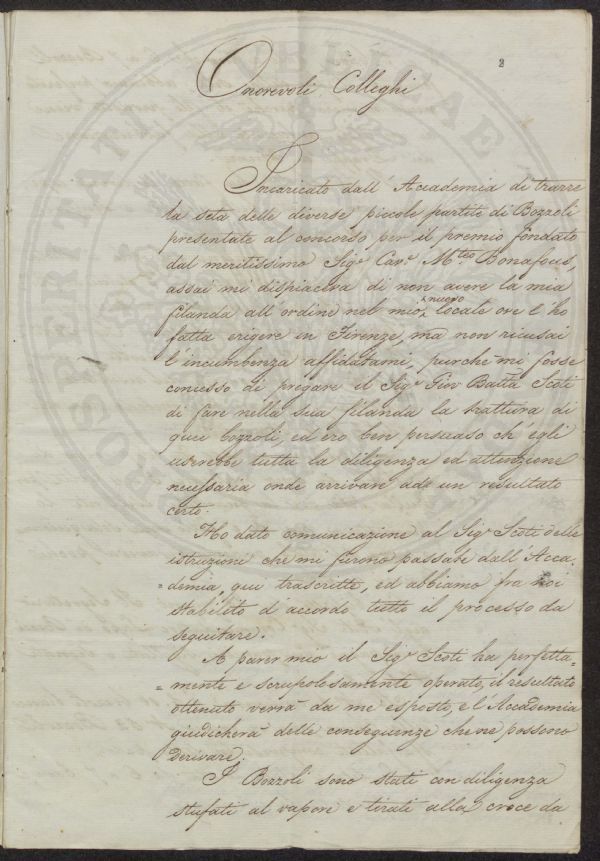 2
Onorevoli Colleghi
Incaricato dall' Accademia di trarre
la seta delle diverse piccole partite di Bozzoli
presentate al concorso per il premio fondato
dal meritissimo Sigr Cavr Mtteo Bonafous,
assai mi dispiaceva di non avere la mia
filanda all'ordine nel mio nuovo locale ove l'ho
fatta erigere in Firenze, ma non ricusai
l'incumbenza affidatami, purchè mi fosse
concesso di pregare il Sigr Giov Batta Scoti
di fare nella sua filanda la trattura di
quei bozzoli, ed ero ben persuaso ch'egli
userebbe tutta la diligenza ed attenzione
necessaria onde arrivare ad un resultato
certo.
Ho dato comunicazione al Sigr Scoti delle
istruzioni che mi furono passate dall'Acca-
=demia, qui trascritte, ed abbiamo fra noi
stabilito d'accordo tutto il processo da
seguitare.
A parer mio il Sigr Scoti ha perfetta-
=mente e scrupolosamente operato, il resultato
ottenuto verrà da me esposto, e l'Accademia
giudicherà delle conseguenze che ne possono
derivare.
I Bozzoli sono stati con diligenza
stufati al vapore e tirati alla croce da
PROSPERITATI PUBLICAE